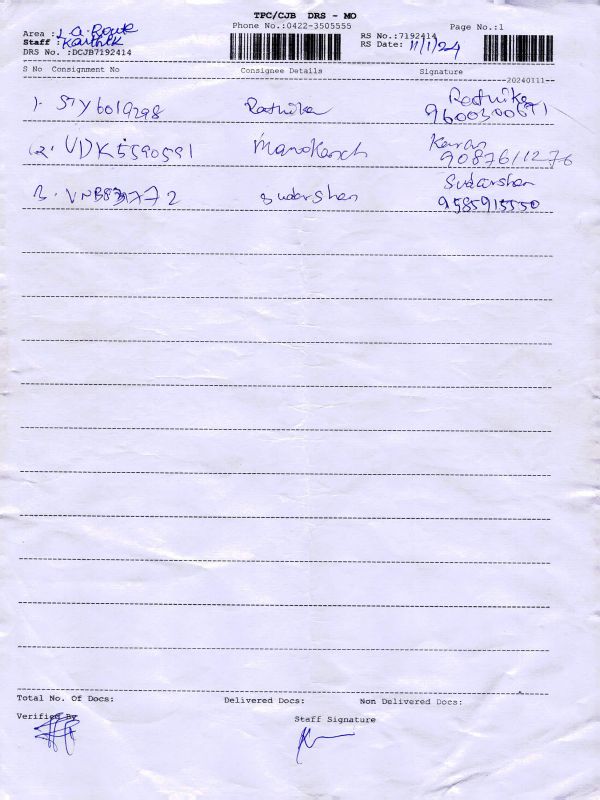 TPC/CJB DRS - MO
Phone No.:0422-3505555 Page No.:1
Area : L.A. Route RS No.:7192414
Staff : Karthik RS Date: 11/1/24
DRS No. :DCJB7192414
S No Consignment No Consignee Details Signature
20240111
1. STY6019298 Rathika Rathika
9600300671
2. VDK5590591 Manokaran Karan
9087611276
3. VNB831772 Sudarshan Sudarshan
9585915550
Total No. Of Docs: Delivered Docs: Non Delivered Docs:
Verified By Staff Signature